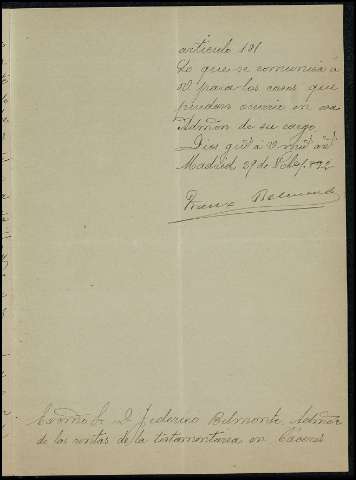 artículo 101
Lo que se comunica á
V. para los casos que
puedan ocurrir en esa
Admón de su cargo
Dios gue á V. mus as
Madrid 29 de 892
Belmonte
D. Federico Belmonte, Admor
de las rentas de la testamentaria en Cáceres